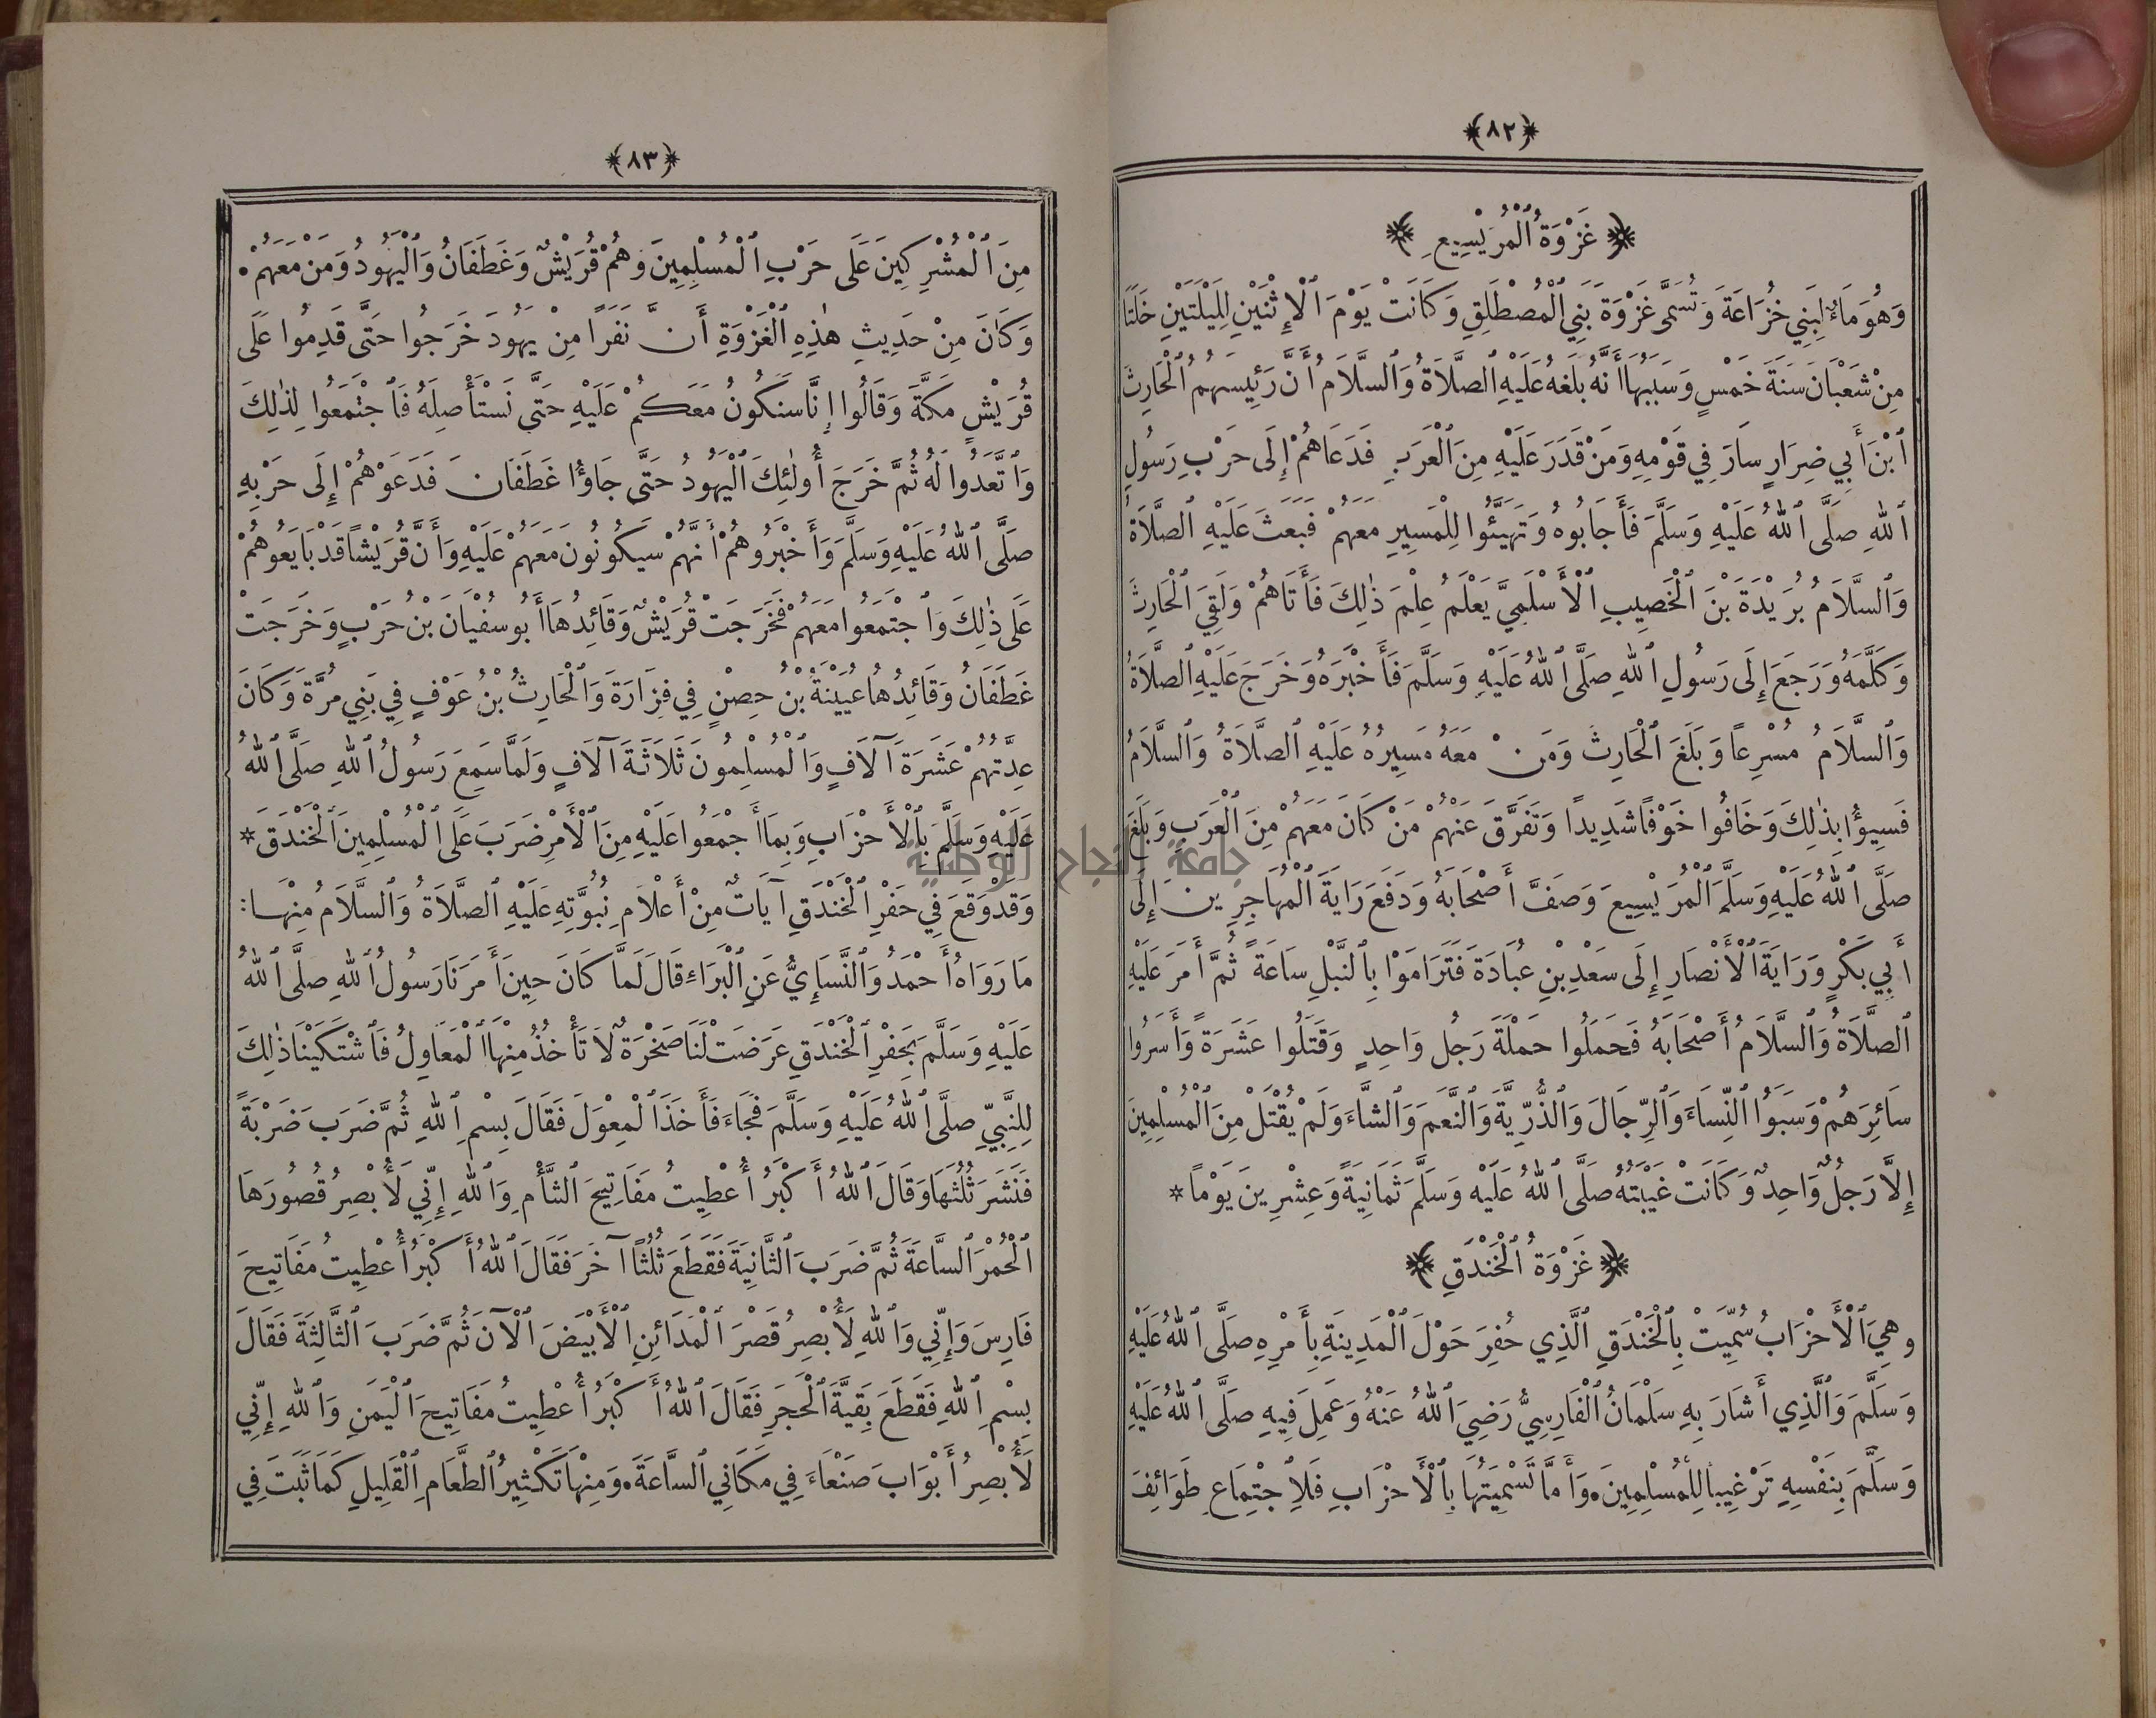 ﴿٨٢﴾
﴿ غَزْوَةُ ٱلْمُرَيْسِيعِ ﴾
وَهُوَ مَاءٌ لِبَنِي خُزَاعَةَ وَتُسَمَّى غَزْوَةَ بَنِي ٱلْمُصْطَلِقِ وَكَانَتْ يَوْمَ ٱلْإِثْنَيْنِ لِلَيْلَتَيْنِ خَلَتَا
مِنْ شَعْبَانَ سَنَةَ خَمْسٍ وَسَبَبُهَا أَنَّهُ بَلَغَهُ عَلَيْهِ ٱلصَّلَاةُ وَٱلسَّلَامُ أَنَّ رَئِيسَهُمُ ٱلْحَارِثَ
ٱبْنَ أَبِي ضِرَارٍ سَارَ فِي قَوْمِهِ وَمَنْ قَدَرَ عَلَيْهِ مِنَ ٱلْعَرَبِ فَدَعَاهُمْ إِلَى حَرْبِ رَسُولِ
ٱللهِ صَلَّى ٱللهُ عَلَيْهِ وَسَلَّمَ فَأَجَابُوهُ وَتَهَيَّئُوا لِلْمَسِيرِ مَعَهُمْ فَبَعَثَ عَلَيْهِ ٱلصَّلَاةُ
وَٱلسَّلَامُ بُرَيْدَةَ بْنَ ٱلْخَصِيبِ ٱلْأَسْلَمِيَّ يَعْلَمُ عِلْمَ ذٰلِكَ فَأَتَاهُمْ وَلَقِيَ ٱلْحَارِثَ
وَكَلَّمَهُ وَرَجَعَ إِلَى رَسُولِ ٱللهِ صَلَّى ٱللهُ عَلَيْهِ وَسَلَّمَ فَأَخْبَرَهُ وَخَرَجَ عَلَيْهِ ٱلصَّلَاةُ
وَٱلسَّلَامُ مُسْرِعاً وَبَلَغَ ٱلْحَارِثَ وَمَنْ مَعَهُ مَسِيرُهُ عَلَيْهِ ٱلصَّلَاةُ وَٱلسَّلَامُ
فَسِيؤُا بِذٰلِكَ وَخَافُوا خَوْفًا شَدِيدًا وَتَفَرَّقَ عَنْهُمْ مَنْ كَانَ مَعَهُمْ مِنَ ٱلْعَرَبِ وَبَلَغَ
صَلَّى ٱللهُ عَلَيْهِ وَسَلَّمَ ٱلْمُرَيْسِيعَ وَصَفَّ أَصْحَابَهُ وَدَفَعَ رَايَةَ ٱلْمُهَاجِرِينَ إِلَى
أَبِي بَكْرٍ وَرَايَةَ ٱلْأَنْصَارِ إِلَى سَعْدِ بْنِ عُبَادَةَ فَتَرَامَوْا بِٱلنَّبْلِ سَاعَةً ثُمَّ أَمَرَ عَلَيْهِ
ٱلصَّلَاةُ وَٱلسَّلَامُ أَصْحَابَهُ فَحَمَلُوا حَمْلَةَ رَجُلٍ وَاحِدٍ وَقَتَلُوا عَشَرَةً وَأَسَرُوا
سَائِرَهُمْ وَسَبَوُا ٱلنِّسَاءَ وَٱلرِّجَالَ وَٱلذُّرِّيَّةَ وَٱلنَّعَمَ وَٱلشَّاءَ وَلَمْ يُقْتَلْ مِنَ ٱلْمُسْلِمِينَ
إِلَّا رَجُلٌ وَاحِدٌ وَكَانَتْ غَيْبَتُهُ صَلَّى ٱللهُ عَلَيْهِ وَسَلَّمَ ثَمَانِيَةً وَعِشْرِينَ يَوْماً *
﴿ غَزْوَةُ ٱلْخَنْدَقِ ﴾
وهِيَ ٱلْأَحْزَابُ سُمِّيَتْ بِٱلْخَنْدَقِ ٱلَّذِي حُفِرَ حَوْلَ ٱلْمَدِينَةِ بِأَمْرِهِ صَلَّى ٱللهُ عَلَيْهِ
وَسَلَّمَ وَٱلَّذِي أَشَارَ بِهِ سَلْمَانُ ٱلْفَارِسِيُّ رَضِيَ ٱللهُ عَنْهُ وَعَمِلَ فِيهِ صَلَّى ٱللهُ عَلَيْهِ
وَسَلَّمَ بِنَفْسِهِ تَرْغِيباً لِلْمُسْلِمِينَ. وَأَمَّا تَسْمِيَتُهَا بِٱلْأَحْزَابِ فَلِاجْتِمَاعِ طَوَائِفَ
﴿٨٣﴾
مِنَ ٱلْمُشْرِكِينَ عَلَى حَرْبِ ٱلْمُسْلِمِينَ وَهُمْ قُرَيْشٌ وَغَطَفَانُ وَٱلْيَهُودُ وَمَنْ مَعَهُمْ.
وَكَانَ مِنْ حَدِيثِ هٰذِهِ ٱلْغَزْوَةِ أَنَّ نَفَراً مِنْ يَهُودَ خَرَجُوا حَتَّى قَدِمُوا عَلَى
قُرَيْشٍ مَكَّةَ وَقَالُوا إِنَّا سَنَكُونُ مَعَكُمْ عَلَيْهِ حَتَّى نَسْتَأْصِلَهُ فَٱجْتَمَعُوا لِذٰلِكَ
وَٱتَّعَدُوا لَهُ ثُمَّ خَرَجَ أُولٰئِكَ ٱلْيَهُودُ حَتَّى جَاؤُا غَطَفَانَ فَدَعَوْهُمْ إِلَى حَرْبِهِ
صَلَّى ٱللهُ عَلَيْهِ وَسَلَّمَ وَأَخْبَرُوهُمْ أَنَّهُمْ سَيَكُونُونَ مَعَهُمْ عَلَيْهِ وَأَنَّ قُرَيْشًا قَدْ بَايَعُوهُمْ
عَلَى ذٰلِكَ وَٱجْتَمَعُوا مَعَهُمْ فَخَرَجَتْ قُرَيْشٌ وَقَائِدُهَا أَبُو سُفْيَانَ بْنُ حَرْبٍ وَخَرَجَتْ
غَطَفَانُ وَقَائِدُهَا عُيَيْنَةُ بْنُ حِصْنٍ فِي فِزَارَةَ وَٱلْحَارِثُ بْنُ عَوْفٍ فِي بَنِي مُرَّةَ وَكَانَ
عِدَّتُهُمْ عَشَرَةَ آلَافٍ وَٱلْمُسْلِمُونَ ثَلَاثَةَ آلَافٍ وَلَمَّا سَمِعَ رَسُولُ ٱللهِ صَلَّى ٱللهُ
عَلَيْهِ وَسَلَّمَ بِٱلْأَحْزَابِ وَبِمَا أَجْمَعُوا عَلَيْهِ مِنَ ٱلْأَمْرِ ضَرَبَ عَلَى ٱلْمُسْلِمِينَ ٱلْخَنْدَقَ *
وَقَدْ وَقَعَ فِي حَفْرِ ٱلْخَنْدَقِ آيَاتٌ مِنْ أَعْلَامِ نُبُوَّتِهِ عَلَيْهِ ٱلصَّلَاةُ وَٱلسَّلَامُ مِنْهَا:
مَا رَوَاهُ أَحْمَدُ وَٱلنَّسَائِيُّ عَنِ ٱلْبَرَاءِ قَالَ لَمَّا كَانَ حِينَ أَمَرَنَا رَسُولُ ٱللهِ صَلَّى ٱللهُ
عَلَيْهِ وَسَلَّمَ بِحَفْرِ ٱلْخَنْدَقِ عَرَضَتْ لَنَا صَخْرَةٌ لَا تَأْخُذُ مِنْهَا ٱلْمَعَاوِلُ فَٱشْتَكَيْنَا ذٰلِكَ
لِلنَّبِيِّ صَلَّى ٱللهُ عَلَيْهِ وَسَلَّمَ فَجَاءَ فَأَخَذَ ٱلْمِعْوَلَ فَقَالَ بِسْمِ ٱللهِ ثُمَّ ضَرَبَ ضَرْبَةً
فَنَشَرَ ثُلُثَهَا وَقَالَ ٱللهُ أَكْبَرُ أُعْطِيتُ مَفَاتِيحَ ٱلشَّأْمِ وَٱللهِ إِنِّي لَأُبْصِرُ قُصُورَهَا
ٱلْحُمْرَ ٱلسَّاعَةَ ثُمَّ ضَرَبَ ٱلثَّانِيَةَ فَقَطَعَ ثُلُثًا آخَرَ فَقَالَ ٱللهُ أَكْبَرُ أُعْطِيتُ مَفَاتِيحَ
فَارِسَ وَإِنِّي وَٱللهِ لَأُبْصِرُ قَصْرَ ٱلْمَدَائِنِ ٱلْأَبْيَضَ ٱلْآنَ ثُمَّ ضَرَبَ ٱلثَّالِثَةَ فَقَالَ
بِسْمِ ٱللهِ فَقَطَعَ بَقِيَّةَ ٱلْحَجَرِ فَقَالَ ٱللهُ أَكْبَرُ أُعْطِيتُ مَفَاتِيحَ ٱلْيَمَنِ وَٱللهِ إِنِّي
لَأُبْصِرُ أَبْوَابَ صَنْعَاءَ فِي مَكَانِي ٱلسَّاعَةَ. وَمِنْهَا تَكْثِيرُ ٱلطَّعَامِ ٱلْقَلِيلِ كَمَا ثَبَتَ فِي
جامعة النجاح الوطنية